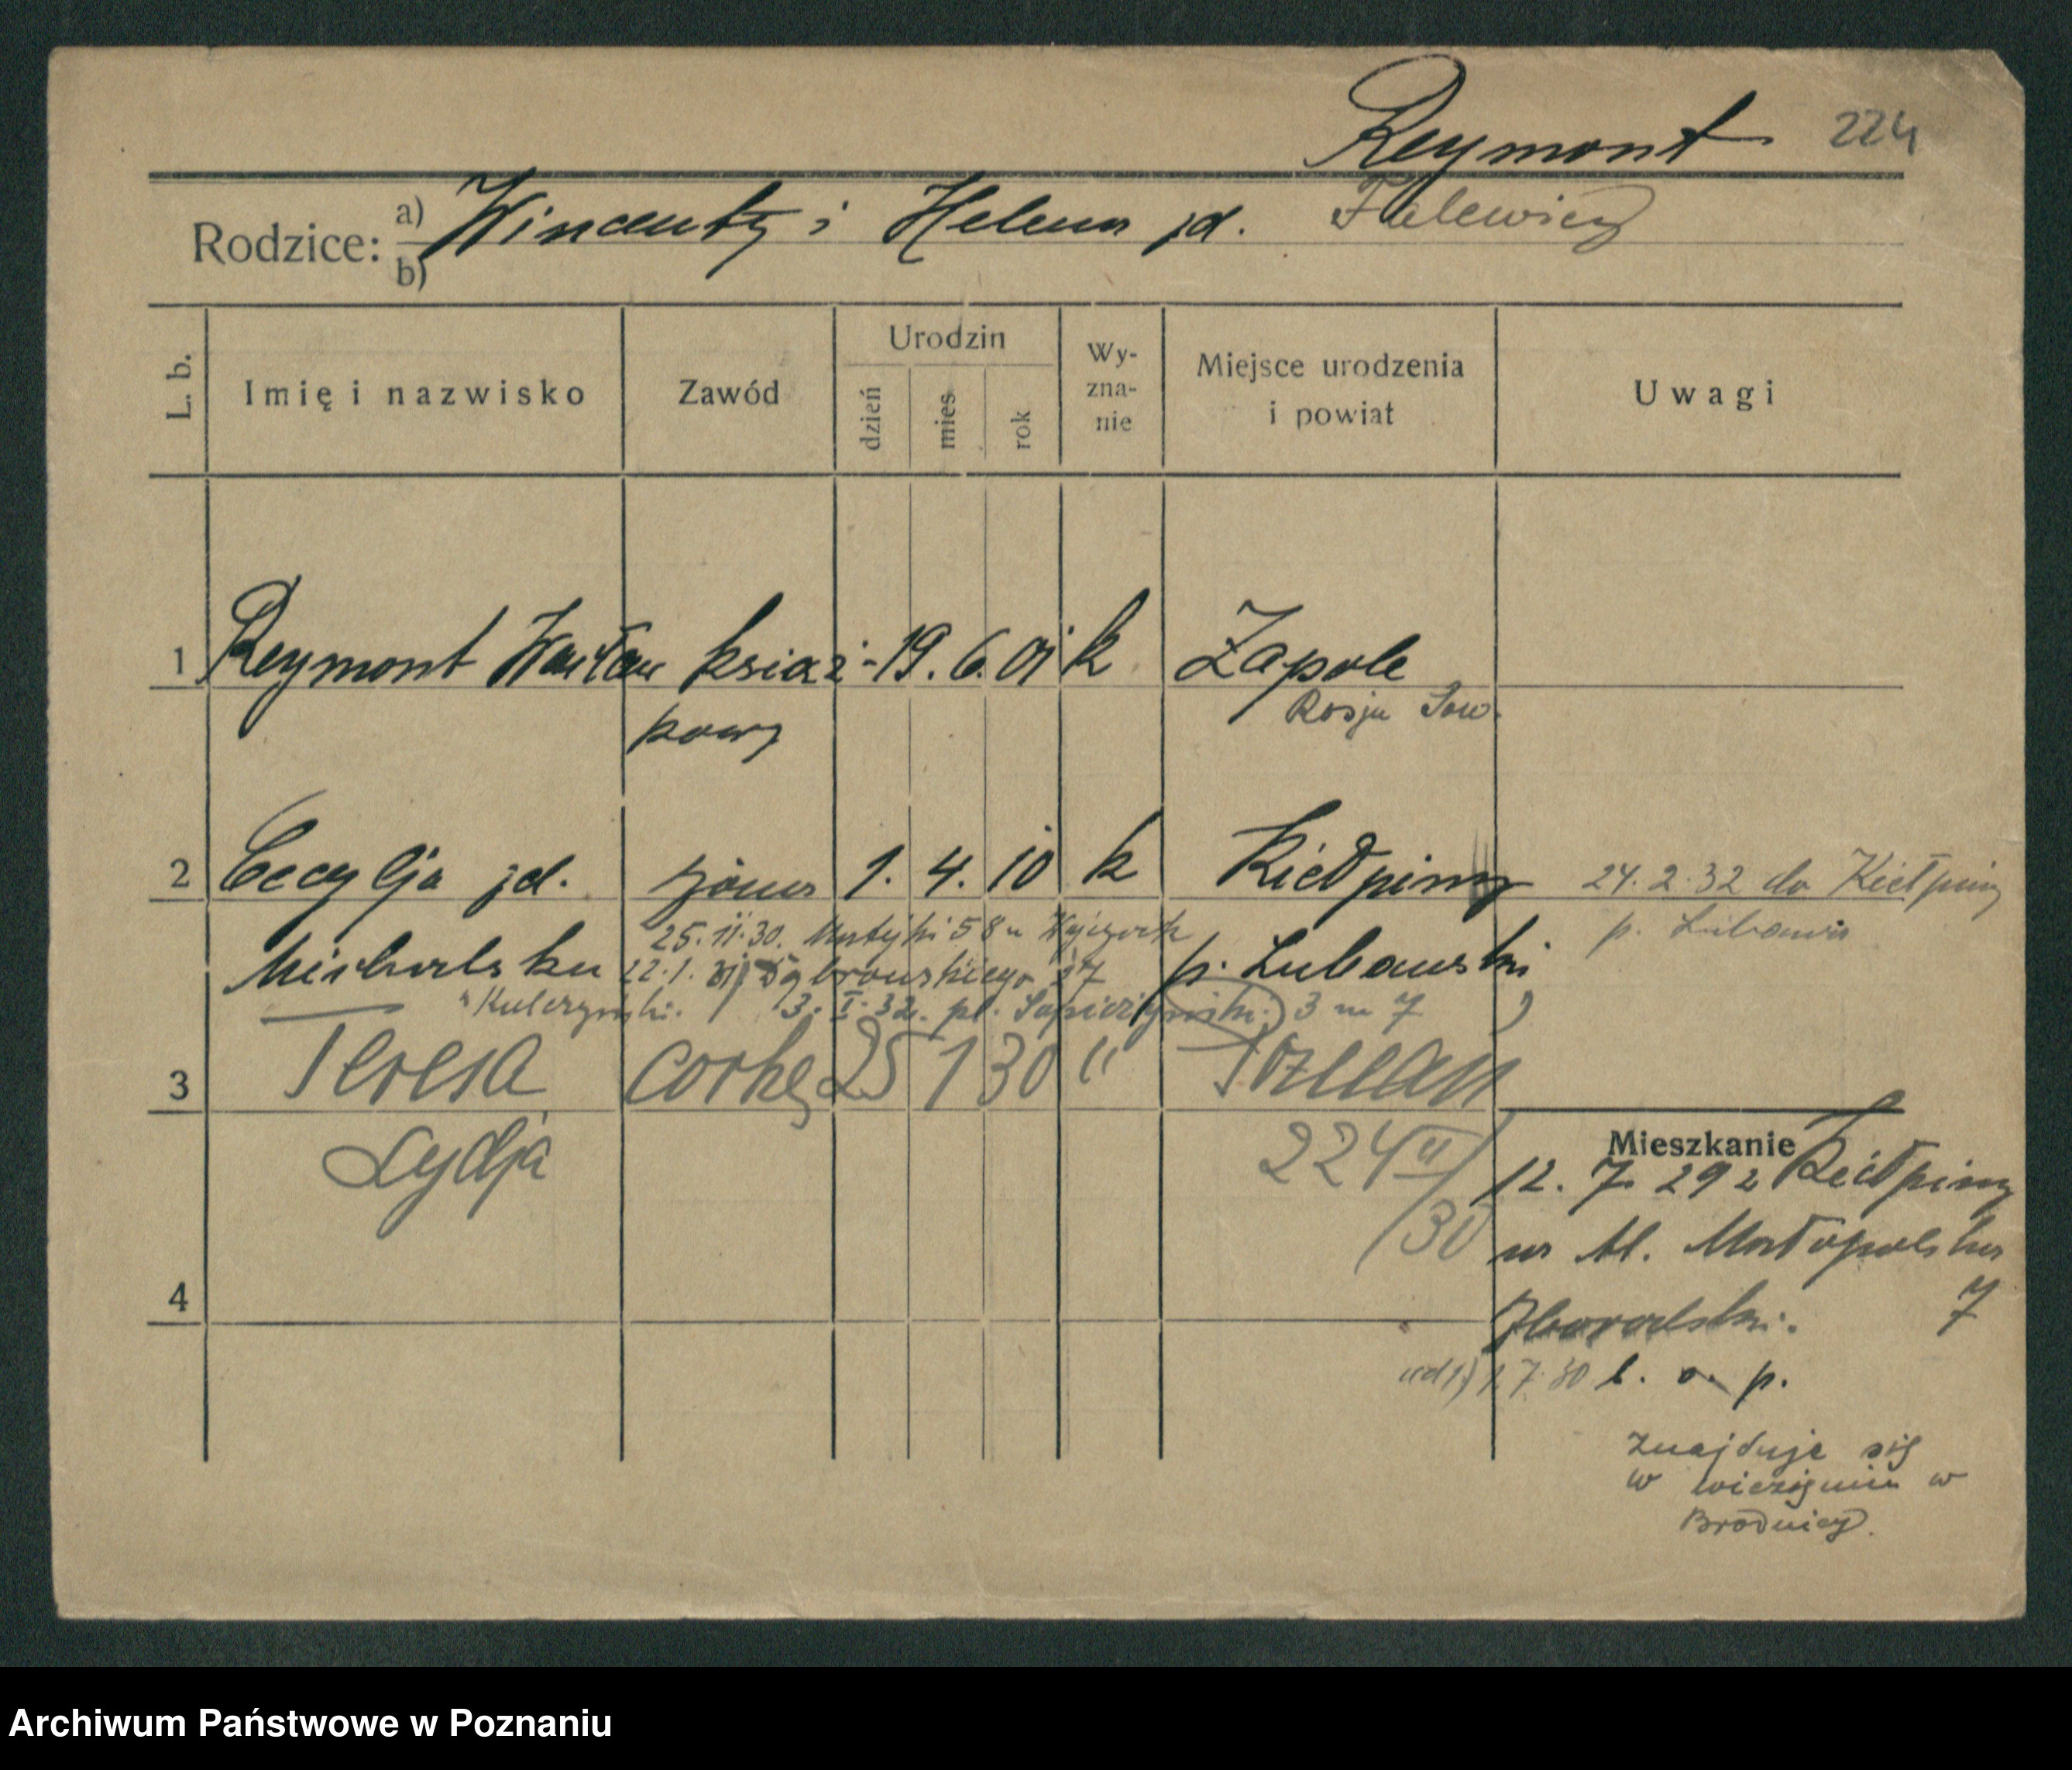 Reymont 224
Rodzice: a) Wincenty i Helena zd. Falewicz
b)
L. b.
Imię i nazwisko
Zawód
Urodzin
dzień
mies
rok
Wy-
zna-
nie
Miejsce urodzenia
i powiat
Uwagi
1 Reymont Wacław książ- 19. 6. 01 k Zapole
kowy
Rosja Sow.
2 Cecylja zd. żona 1. 4. 10 k Kiełpiny 24. 2. 32 do Kiełpiny
Michalska p. Lubawski p. Lubawa
25. 11. 30. Matejki 58 u
22. 1. 31 Dąbrowskiego
Kulczyński. 3. I. 32. pl. Sapieżyński 3 m 7
3 Teresa córkę 25 1 30 " Poznań
Lydja
224 II/30
4
Mieszkanie
12. 7. 29 z Kiełpiny
Al. Małopolska
7
1. 7. 30 b. o. p.
Znajduje się
w więzieniu w
Brodnicy.
Archiwum Państwowe w Poznaniu